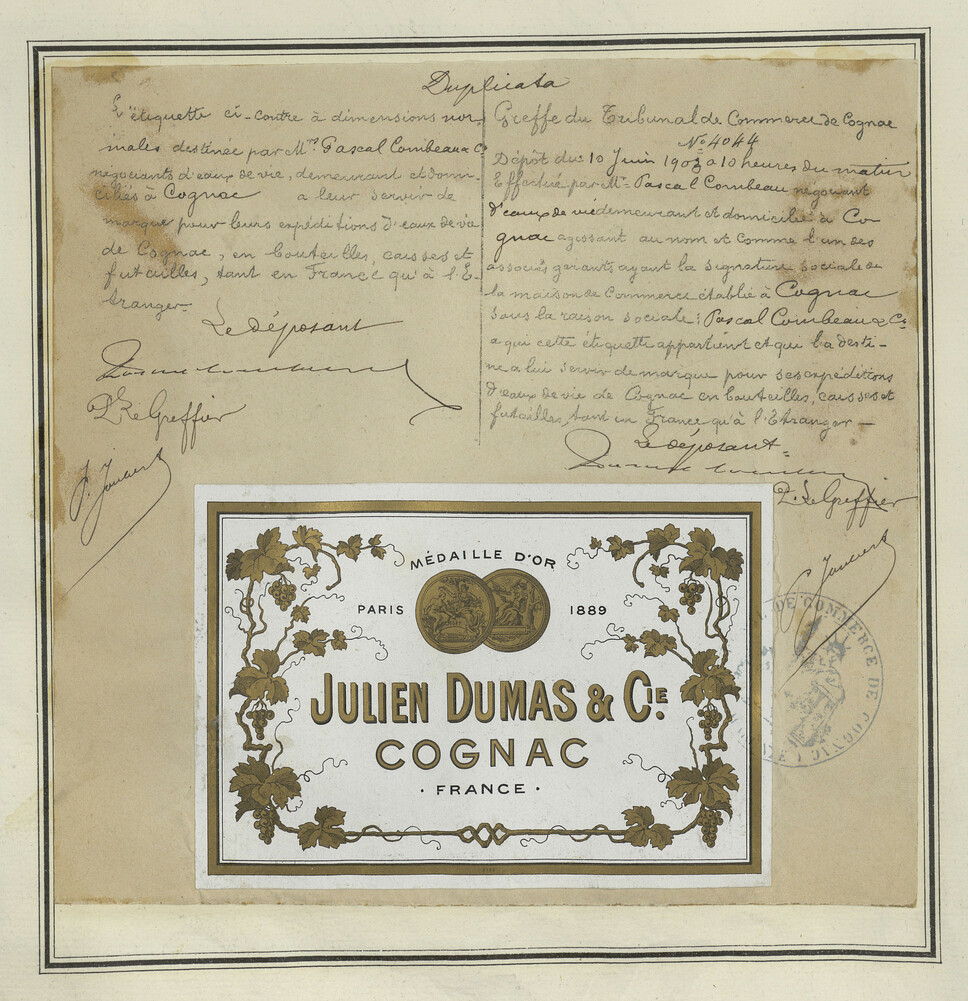 Duplicata
L'étiquette ci-contre à dimensions nor-
males destinée par M.rs Pascal Combeau & Ce
négociants d'eaux de vie, demeurant et domi-
ciliés à Cognac à leur servir de
marque pour leurs expéditions d'eaux de vie
de Cognac, en bouteilles, caisses et
futailles, tant en France qu'à l'E-
tranger.
Le déposant
P. Le Greffier
Greffe du Tribunal de Commerce de Cognac
No 4044
Dépôt du 10 Juin 1903 à 10 heures du matin
Effectué par Mr Pascal Combeau négociant
d'eaux de vie demeurant et domicilié à Co-
gnac agissant au nom et comme l'un des
associés gérants ayant la signature sociale de
la maison de Commerce établie à Cognac
sous la raison sociale: Pascal Combeau & Ce
a qui cette étiquette appartient et qui l'a desti-
né a lui servir de marque pour ses expéditions
d'eaux de vie de Cognac en bouteilles, caisses et
futailles, tant en France qu'à l'Etranger —
Le déposant
P. Le Greffier
MÉDAILLE D'OR
PARIS 1889
JULIEN DUMAS & CIE.
COGNAC
· FRANCE ·
DE COMMERCE DE COGNAC